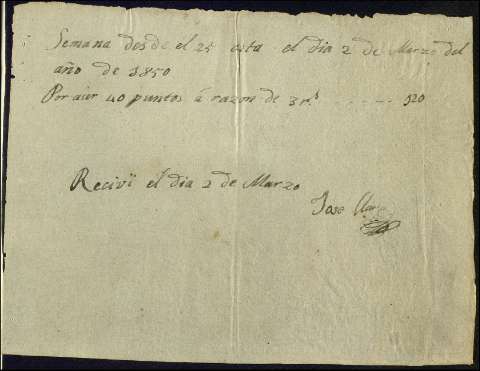 Semana desde el 25 asta el dia 2 de Marzo del
año de 1850
Por aser 40 puntos á razon de 3 rs. - - - - - 120
Recivi el dia 2 de Marzo
Jose